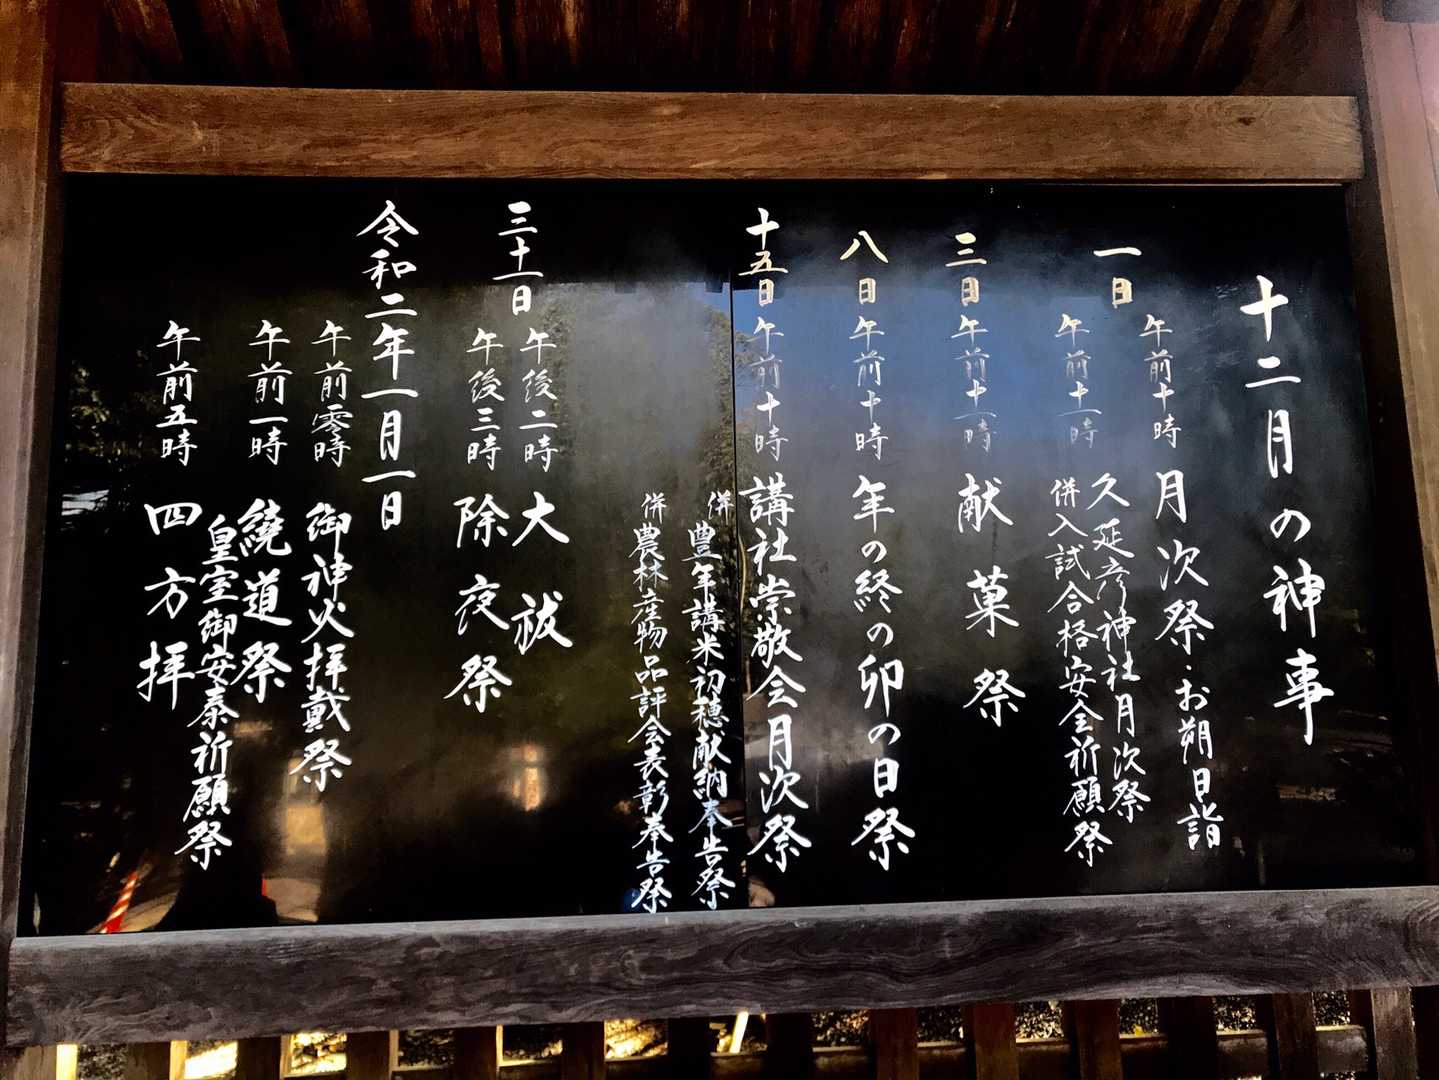 十二月の神事
一日
午前十時 月次祭・お朔日詣
午前十一時 久延彦神社月次祭
併入試合格安全祈願祭
三日 午前十一時 献菓祭
八日 午前十時 年の終の卯の日祭
十五日 午前十時 講社崇敬会月次祭
併豊年講米初穂献納奉告祭
併農林産物品評会表彰奉告祭
三十一日 午後二時 大祓
午後三時 除夜祭
令和二年一月一日
午前零時 御神火拝戴祭
午前一時 繞道祭
皇室御安泰祈願祭
午前五時 四方拝